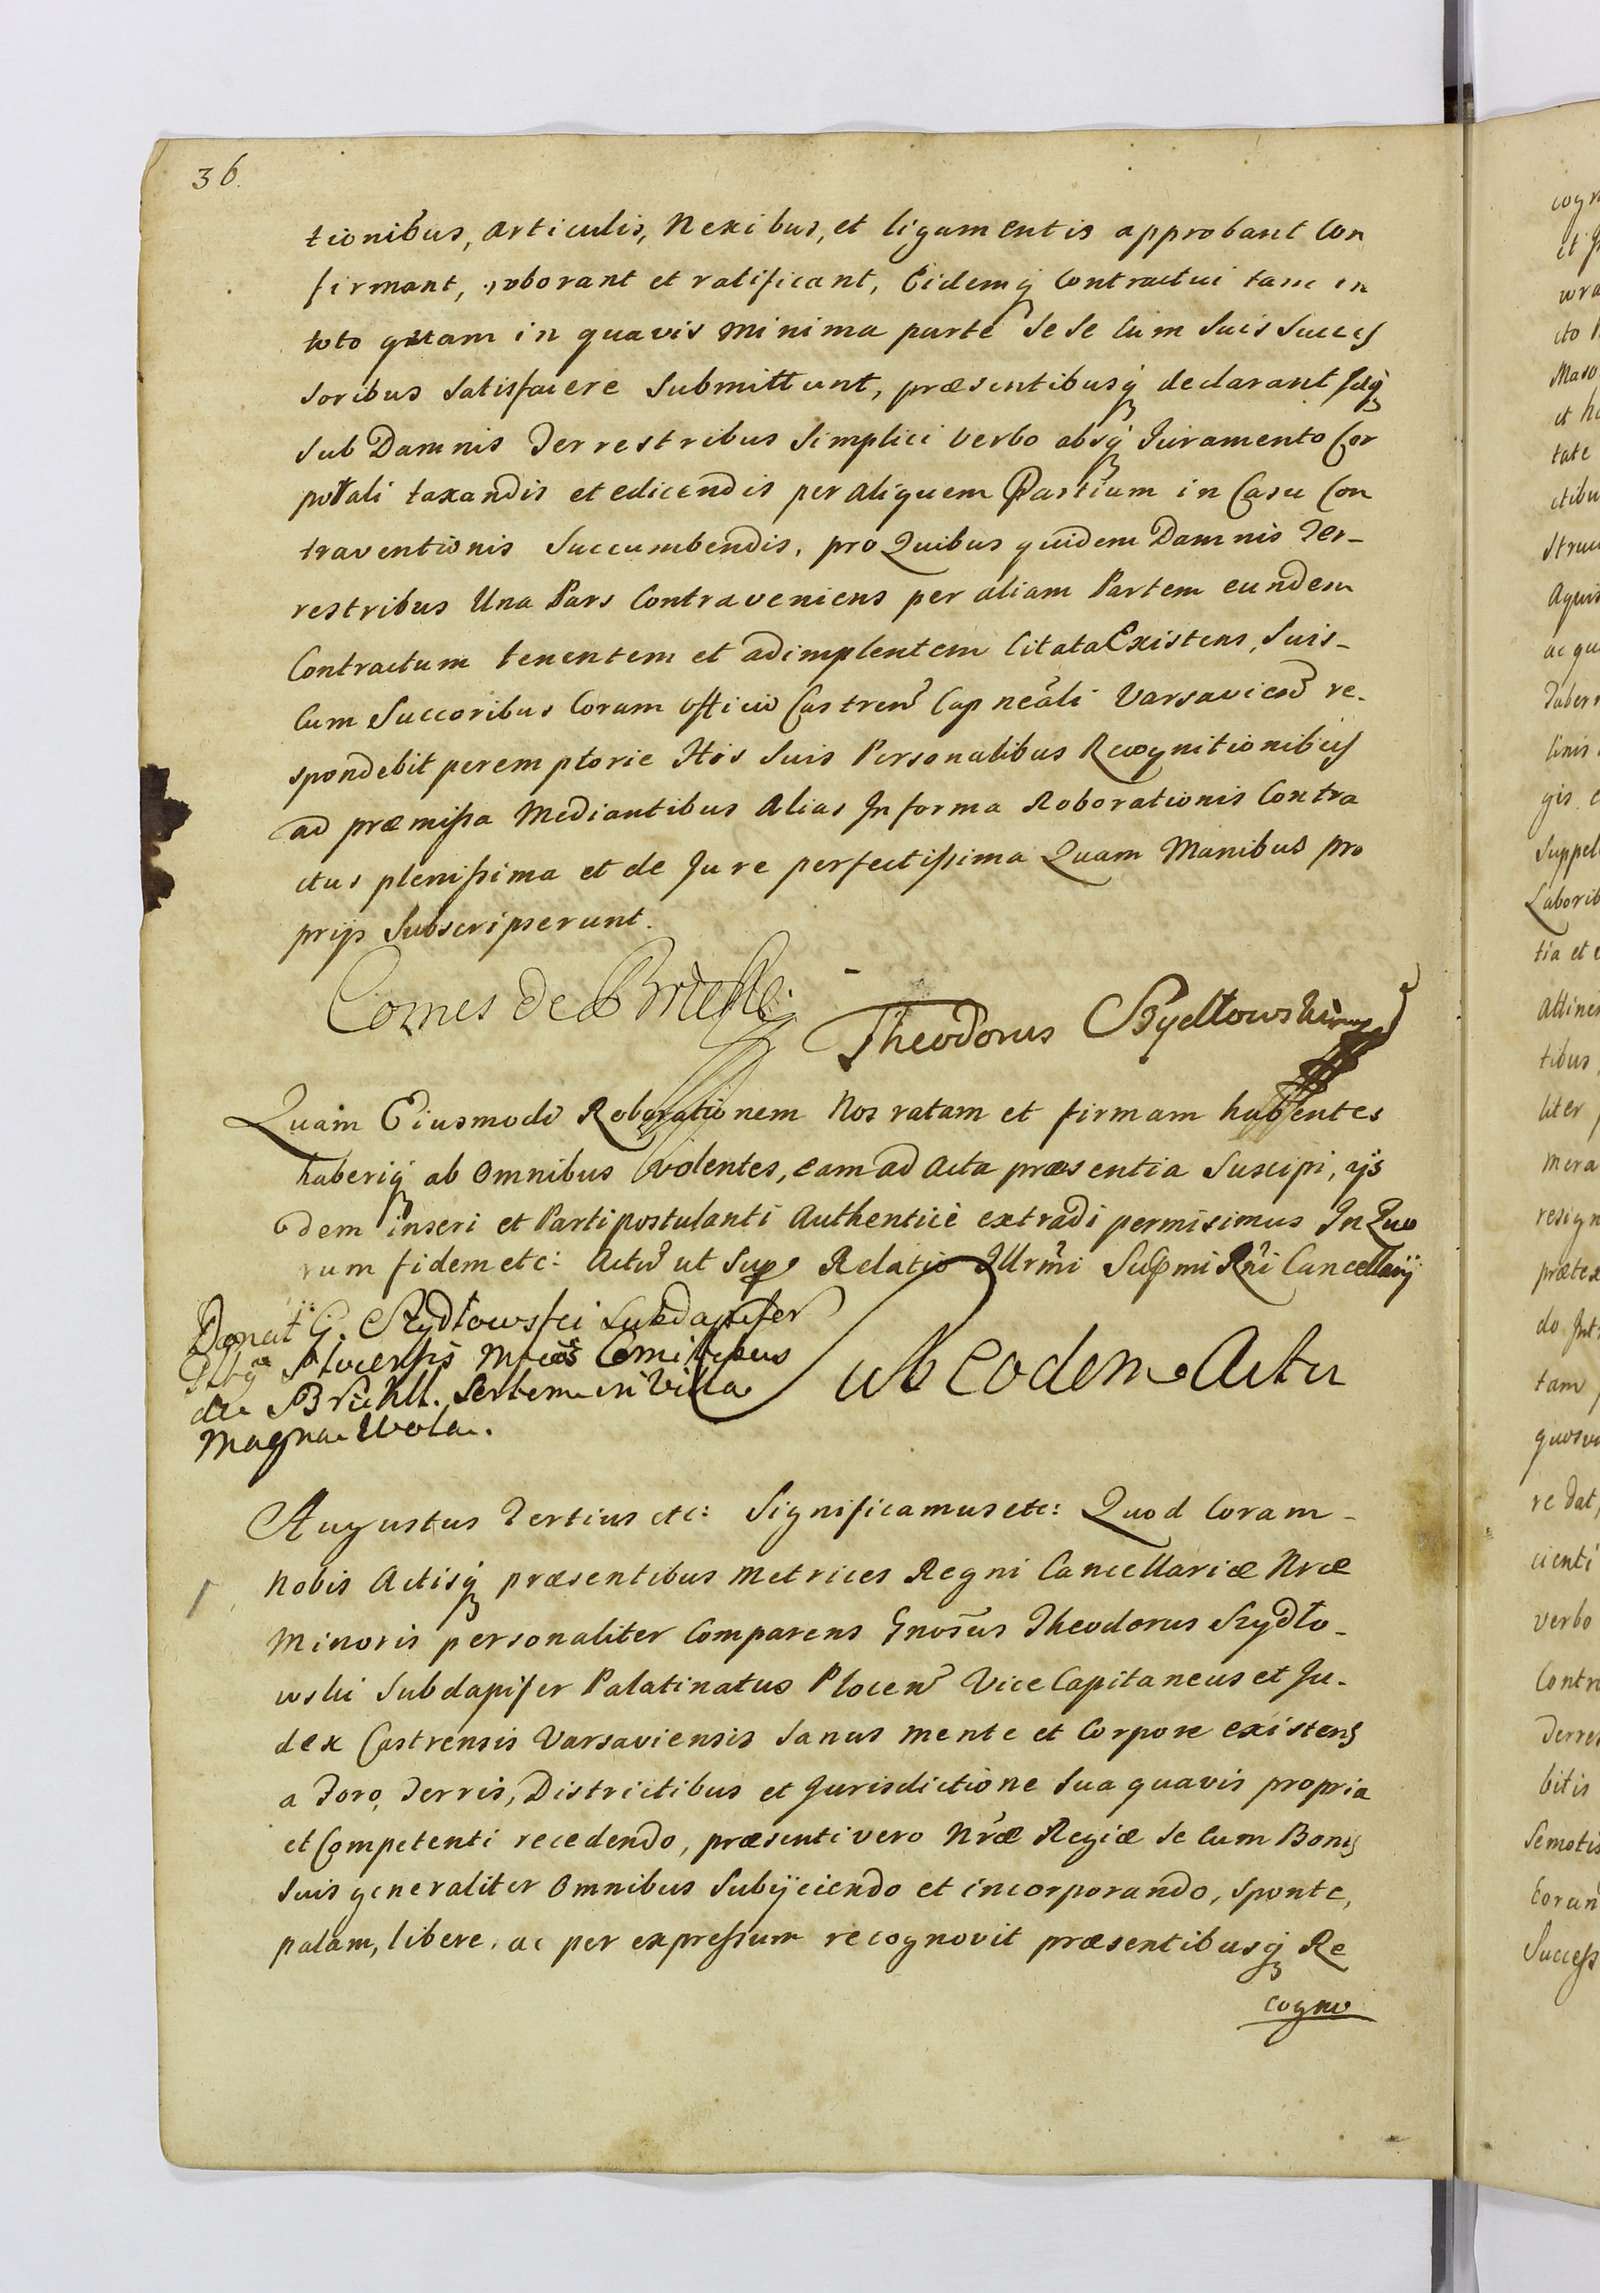 36.
tionibus, articulis, Nexibus, et ligamentis approbant Con
firmant, roborant et ratificant, Eidemq́ Contractui tam in
toto quam in quavis minima parte Sese Cum Suis Succes
soribus Satisfacere Submittunt, præsentibusq́ declarant Idq́
Sub Damnis Terrestribus Simplici Verbo absq́ Juramento Cor
porali taxandis et edicendis per aliquem Partium in Casu Con
traventionis Succumbendis, pro Quibus quidem Damnis Ter-
restribus Una Pars Contraveniens per aliam Partem eundem
Contractum tenentem et adimplentem Citata Existens, Suis-
Cum Succoribus Coram Officio Castren̄ Cap̄neāli Varsavien̄ re-
spondebit peremptorie His Suis Personalibus Recognitionibus
ad præmissa Mediantibus Alias In forma Roborationis Contra
ctus plenissima et de Jure perfectissima Quam Manibus pro
prijs Subscripserunt.
Comes de Brühl
Theodorus Szydłowski
Quam Eiusmodi Roborationem Nos ratam et firmam habentes
haberiq́ ab Omnibus Volentes, eam ad Acta præsentia Suscipi, ijs
dem inseri et Parti postulanti Authenticè extradi permisimus In Quo
rum fidem etc: Actū ut Sup̄ Relatio Illrm̄i Sup̄mi R̄ni Cancellarij
G. Szydłowski Subdapifer
Plocensis Comiti
de Brühl. Sortem in Villa
Magna Wola.
Ab Eodem Actu
Augustus Tertius etc: Significamus etc: Quod Coram-
Nobis Actisq́ præsentibus Metrices Regni Cancellariæ Nræ
Minoris personaliter Comparens Gnōsus Theodorus Szydło-
wski Subdapifer Palatinatus Plocen̄ Vice Capitaneus et Ju-
dex Castrensis Varsaviensis Sanus mente et Corpore existens
a Foro, Terris, Districtibus et Jurisdictione Sua quavis propria
et Competenti recedendo, præsenti vero Nr̄æ Regiæ Se Cum Bonis
Suis generaliter Omnibus Subijciendo et incorporando, Sponte,
palam, libere, ac per expressum recognovit præsentibusq́ Re
cogno